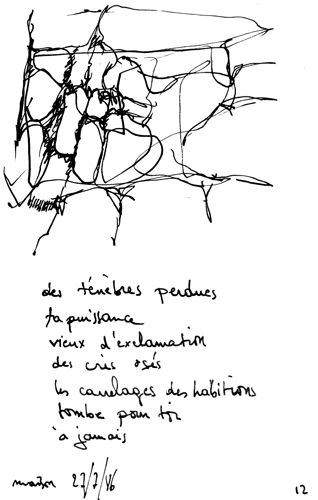 des ténèbres perdues
ta puissance
vieux d'exclamation
des cris osés
les carrelages des habitions
tombe pour toi
à jamais
27/7/86
12